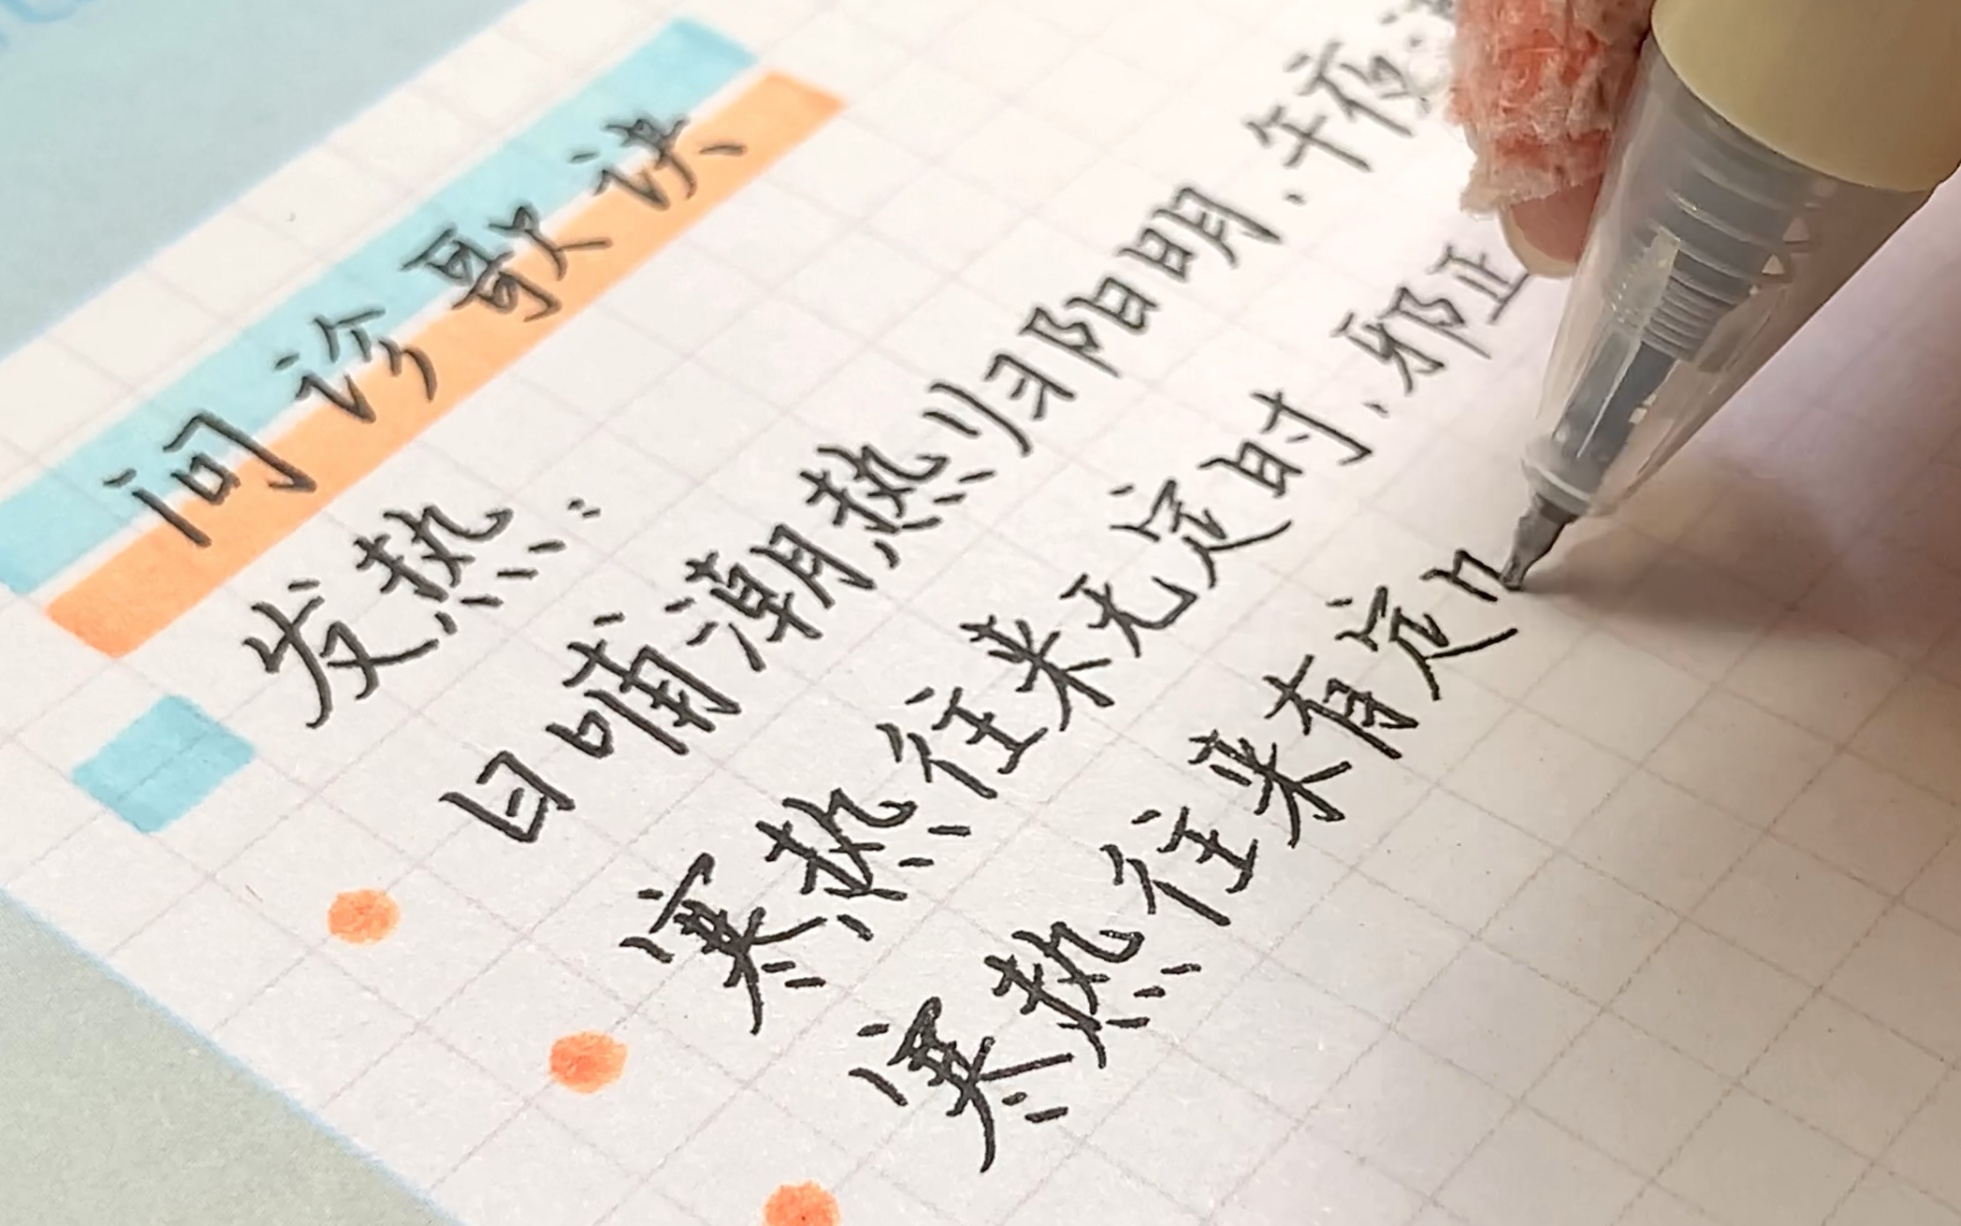 问诊歌诀
发热:
日晡潮热归阳明.午夜
寒热往来无定时.邪正
寒热往来有定